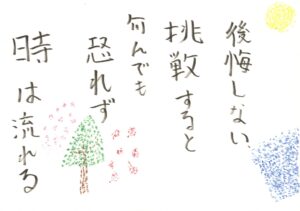 後悔しない
挑戦すると
何んでも
恐れず
時は流れる